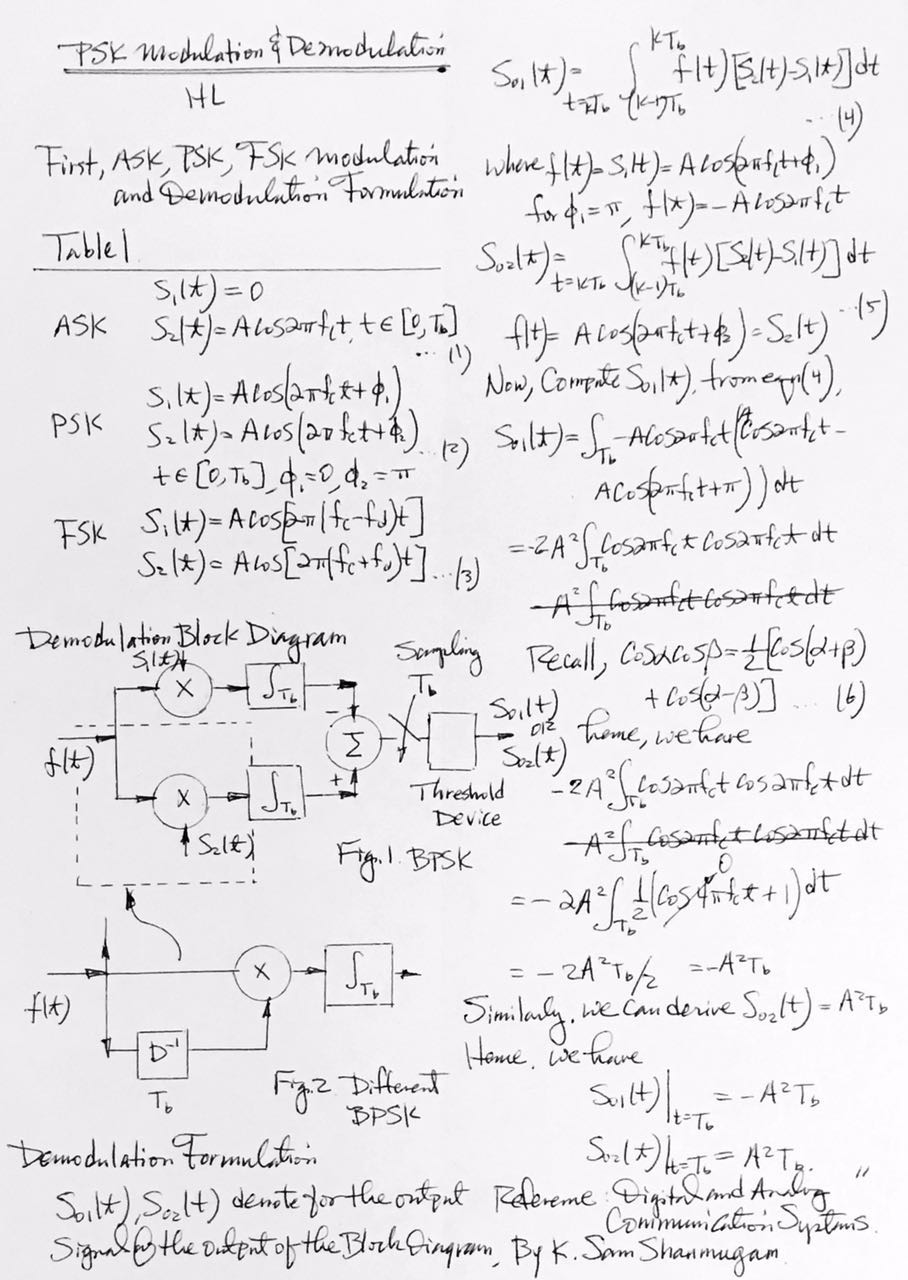 PSK Modulation & Demodulation
HL
First, ASK, PSK, FSK modulation
and Demodulation Formulation
Table 1
S₁(t) = 0
ASK S₂(t) = A cos2πf_c t, t ∈ [0, T_b]
... (1)
S₁(t) = A cos(2πf_c t + ϕ₁)
PSK S₂(t) = A cos(2πf_c t + ϕ₂) ... (2)
t ∈ [0, T_b], ϕ₁ = 0, ϕ₂ = π
FSK S₁(t) = A cos[2π(f_c - f_d)t]
S₂(t) = A cos[2π(f_c + f_d)t] ... (3)
Demodulation Block Diagram
S₁(t)
X
∫_Tb
Sampling
T_b
f(t)
-
Σ
+
S₀₁(t)
or
S₀₂(t)
X
∫_Tb
Threshold
Device
S₂(t)
Fig. 1. BPSK
f(t)
X
∫_Tb
D⁻¹
T_b
Fig. 2 Different
BPSK
Demodulation Formulation
S₀₁(t), S₀₂(t) denote for the output
Signal @ the output of the Block Diagram,
S₀₁(t) = ∫_(k-1)Tb^kTb f(t)[S₂(t) - S₁(t)]dt
t = kT_b
... (4)
where f(t) = S₁(t) = A cos(2πf_c t + ϕ₁)
for ϕ₁ = π, f(t) = -A cos2πf_c t
S₀₂(t) = ∫_(k-1)Tb^kTb f(t)[S₂(t) - S₁(t)]dt
t = kT_b
... (5)
f(t) = A cos(2πf_c t + ϕ₂) = S₂(t)
Now, Compute S₀₁(t), from eqn (4),
S₀₁(t) = ∫_Tb -A cos2πf_c t (A cos2πf_c t -
A cos(2πf_c t + π)) dt
= -2A² ∫_Tb cos2πf_c t cos2πf_c t dt
- A² ∫_Tb cos2πf_c t cos2πf_c t dt
Recall, cosα cosβ = ½[cos(α+β)
+ cos(α-β)] ... (6)
hence, we have
-2A² ∫_Tb cos2πf_c t cos2πf_c t dt
- A² ∫_Tb cos2πf_c t cos2πf_c t dt
0
= -2A² ∫_Tb ½(cos4πf_c t + 1) dt
= -2A² T_b/2 = -A² T_b
Similarly, we can derive S₀₂(t) = A² T_b
Hence, we have
S₀₁(t)|_t=Tb = -A² T_b
S₀₂(t)|_t=Tb = A² T_b.
Reference: Digital and Analog
Communication Systems"
By K. Sam Shanmugam